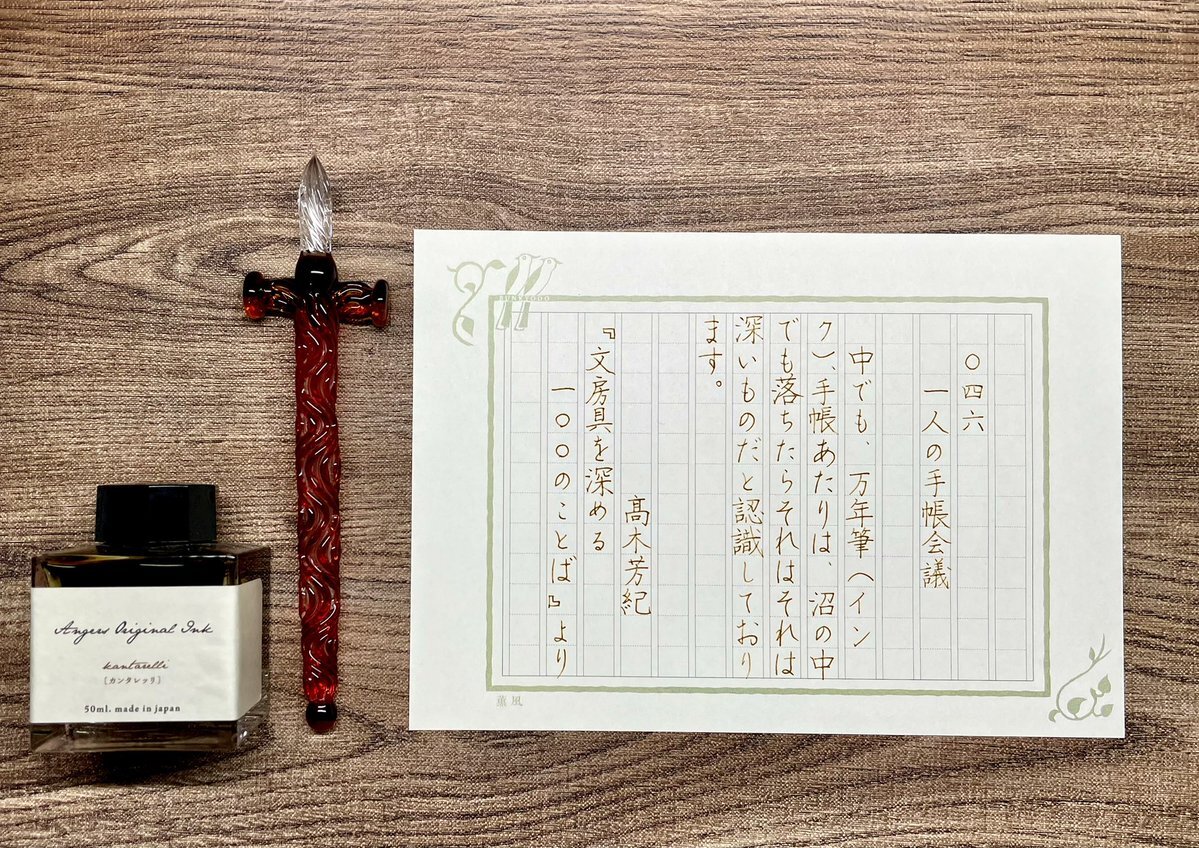 〇四六
一人の手帳会議
中でも、万年筆(イン
ク)、手帳あたりは、沼の中
でも落ちたらそれはそれは
深いものだと認識しており
ます。
髙木芳紀
『文房具を深める
一〇〇のことば』より
BUNKYODO
薫風
Angers Original Ink
kantarelli
[カンタレッリ]
50ml. made in japan